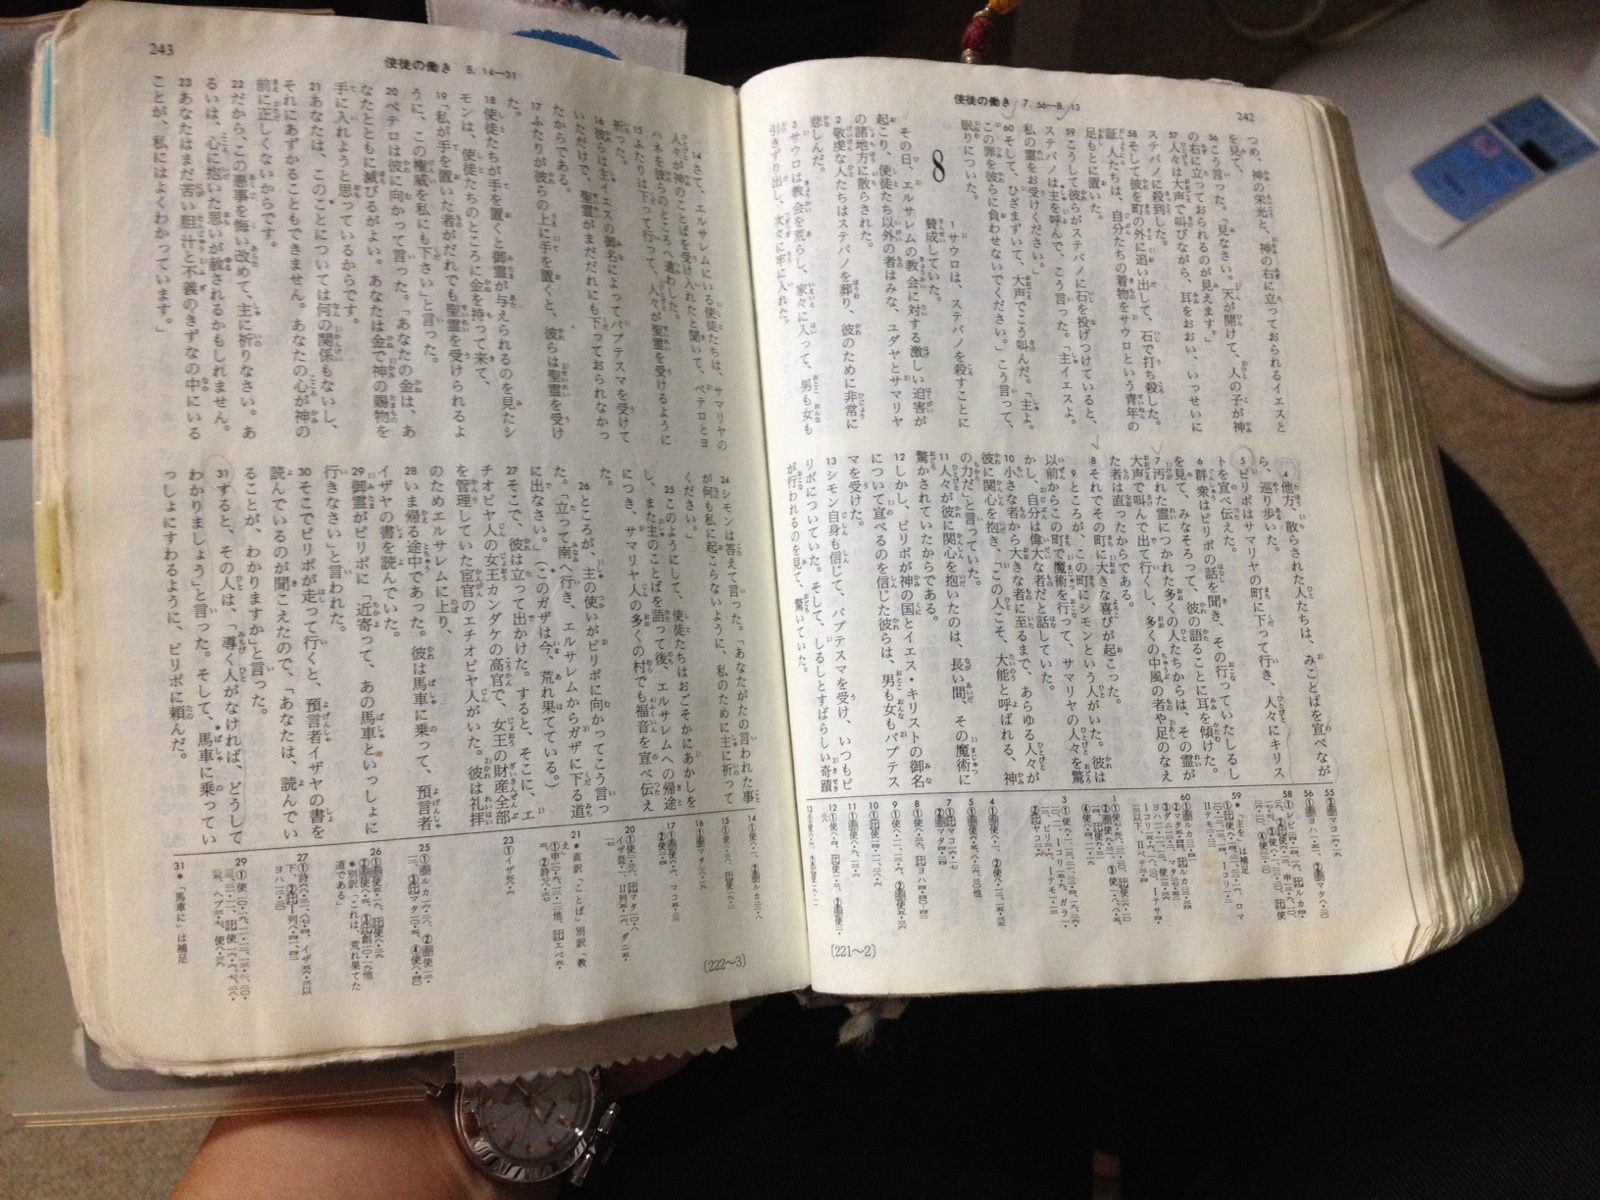 242
使徒の働き 7. 56—8. 13
つめ、神の栄光と、神の右に立っておられるイエスと
を見て、
56 こう言った。「見なさい。天が開けて、人の子が神
の右に立っておられるのが見えます。」
57 人々は大声で叫びながら、耳をおおい、いっせいに
ステパノに殺到した。
58 そして彼を町の外に追い出して、石で打ち殺した。
証人たちは、自分たちの着物をサウロという青年の
足もとに置いた。
59 こうして彼らがステパノに石を投げつけていると、
ステパノは主を呼んで、こう言った。「主イエスよ。
私の霊をお受けください。」
60 そして、ひざまずいて、大声でこう叫んだ。「主よ。
この罪を彼らに負わせないでください。」こう言って、
眠りについた。
8
1 サウロは、ステパノを殺すことに
賛成していた。
その日、エルサレムの教会に対する激しい迫害が
起こり、使徒たち以外の者はみな、ユダヤとサマリヤ
の諸地方に散らされた。
2 敬虔な人たちはステパノを葬り、彼のために非常に
悲しんだ。
3 サウロは教会を荒らし、家々に入って、男も女も
引きずり出し、次々に牢に入れた。
4 他方、散らされた人たちは、みことばを宣べなが
ら、巡り歩いた。
5 ピリポはサマリヤの町に下って行き、人々にキリス
トを宣べ伝えた。
6 群衆はピリポの話を聞き、その行っていたしるし
を見て、みなそろって、彼の語ることに耳を傾けた。
7 汚れた霊につかれた多くの人たちからは、その霊が
大声で叫んで出て行くし、多くの中風の者や足のなえ
た者は直ったからである。
8 それでその町に大きな喜びが起こった。
9 ところが、この町にシモンという人がいた。彼は
以前からこの町で魔術を行って、サマリヤの人々を驚
かし、自分は偉大な者だと話していた。
10 小さな者から大きな者に至るまで、あらゆる人々が
彼に関心を抱き、「この人こそ、大能と呼ばれる、神
の力だ」と言っていた。
11 人々が彼に関心を抱いたのは、長い間、その魔術に
驚かされていたからである。
12 しかし、ピリポが神の国とイエス・キリストの御名
について宣べるのを信じた彼らは、男も女もバプテス
マを受けた。
13 シモン自身も信じて、バプテスマを受け、いつもピ
リポについていた。そして、しるしとすばらしい奇蹟
が行われるのを見て、驚いていた。
59 *「主を」は補足
〔221〜2〕
243
使徒の働き 8. 14—31
14 さて、エルサレムにいる使徒たちは、サマリヤの
人々が神のことばを受け入れたと聞いて、ペテロとヨ
ハネを彼らのところへ遣わした。
15 ふたりは下って行って、人々が聖霊を受けるように
祈った。
16 彼らは主イエスの御名によってバプテスマを受けて
いただけで、聖霊がまだだれにも下っておられなかっ
たからである。
17 ふたりが彼らの上に手を置くと、彼らは聖霊を受け
た。
18 使徒たちが手を置くと御霊が与えられるのを見たシ
モンは、使徒たちのところに金を持って来て、
19 「私が手を置いた者がだれでも聖霊を受けられるよ
うに、この権威を私にも下さい」と言った。
20 ペテロは彼に向かって言った。「あなたの金は、あ
なたとともに滅びるがよい。あなたは金で神の賜物を
手に入れようと思っているからです。
21 あなたは、このことについては何の関係もないし、
それにあずかることもできません。あなたの心が神の
前に正しくないからです。
22 だから、この悪事を悔い改めて、主に祈りなさい。あ
るいは、心に抱いた思いが赦されるかもしれません。
23 あなたはまだ苦い胆汁と不義のきずなの中にいる
ことが、私にはよくわかっています。」
24 シモンは答えて言った。「あなたがたの言われた事
が何も私に起こらないように、私のために主に祈って
ください。」
25 このようにして、使徒たちはおごそかにあかしを
し、また主のことばを語って後、エルサレムへの帰途
につき、サマリヤ人の多くの村でも福音を宣べ伝え
た。
26 ところが、主の使いがピリポに向かってこう言っ
た。「立って南へ行き、エルサレムからガザに下る道
に出なさい。」(このガザは今、荒れ果てている。)
27 そこで、彼は立って出かけた。すると、そこに、エ
チオピヤ人の女王カンダケの高官で、女王の財産全部
を管理していた宦官のエチオピヤ人がいた。彼は礼拝
のためエルサレムに上り、
28 いま帰る途中であった。彼は馬車に乗って、預言者
イザヤの書を読んでいた。
29 御霊がピリポに「近寄って、あの馬車といっしょに
行きなさい」と言われた。
30 そこでピリポが走って行くと、預言者イザヤの書を
読んでいるのが聞こえたので、「あなたは、読んでい
ることが、わかりますか」と言った。
31 すると、その人は、「導く人がなければ、どうして
わかりましょう」と言った。そして、馬車に乗ってい
っしょにすわるように、ピリポに頼んだ。
21 *直訳「ことば」別訳「教
え」
*別訳「これは、荒れ果てた
道である」
31 *「馬車に」は補足
〔222〜3〕